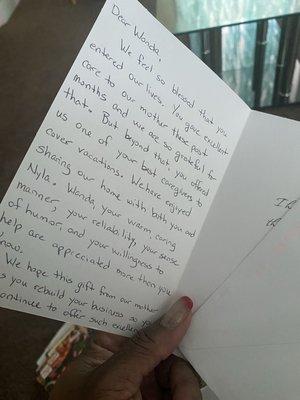 Dear Wanda,
We feel so blessed that you
entered our lives. You gave excellent
care to our mother these past
months and we are so grateful for
that. But beyond that, you offered
us one of your best caregivers to
cover vacations. We have enjoyed
sharing our home with both you and
Nyla. Wanda, your warm, caring
manner, your reliability, your sense
of humor, and your willingness to
help are appreciated more than you
now.
We hope this gift from our mother
s you rebuild your business so you
continue to offer such excellen
I